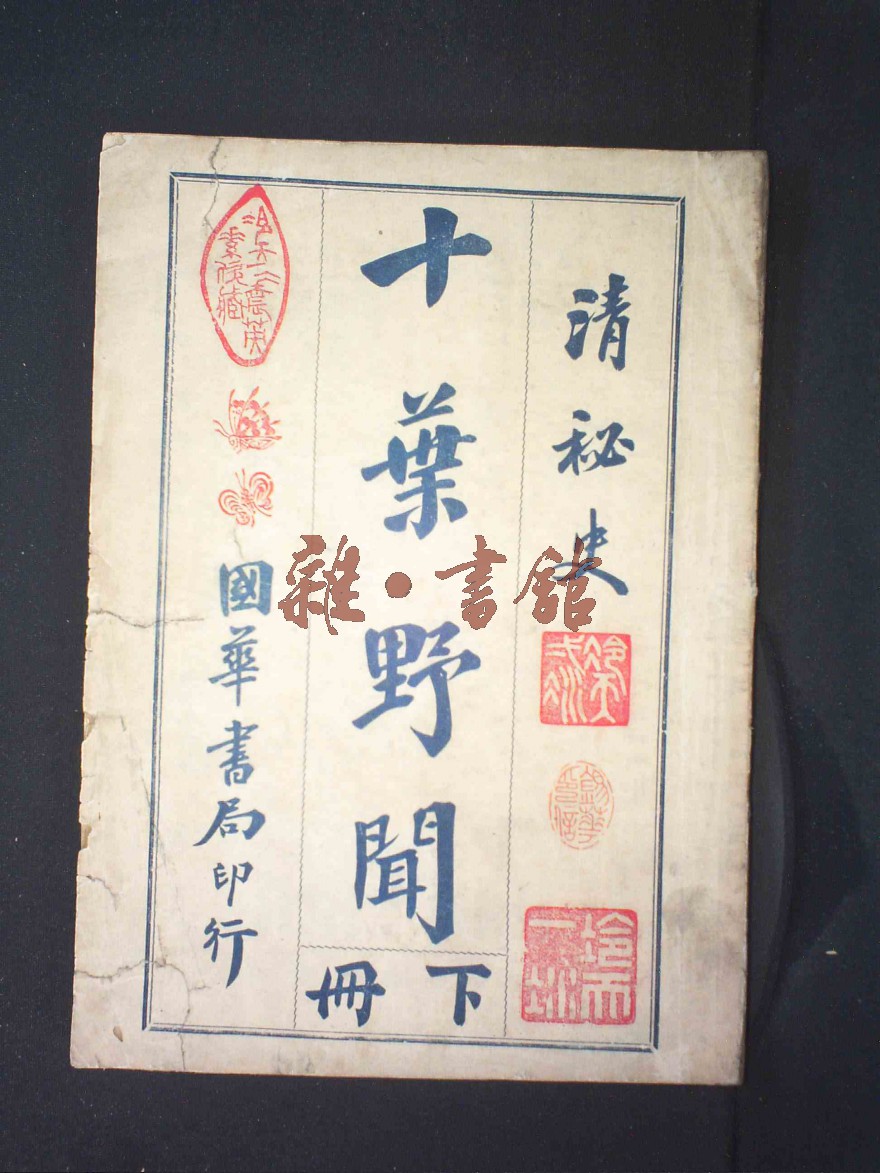 清秘史
十葉野聞
下冊
國華書局印行
雜·書舘